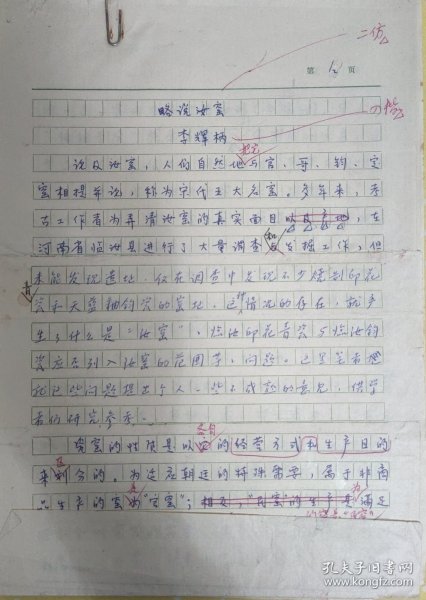 二仿
第 1 页
略说汝窑
李辉柄
说及汝窑，人们自然地把它与官、哥、钧、定
窑相提并论，称为宋代五大名窑。多年来，考
古工作者为弄清汝窑的真实面目以及产地，在
河南省临汝县进行了大量调查和发掘工作，但
未能发现遗址，仅在调查中发现不少烧制印花
青瓷和天蓝釉钧瓷的窑址，这种情况的存在，就产
生了什么是“汝窑”、临汝印花青瓷与临汝钧
瓷应否列入汝窑的范围等问题。这里笔者想
就这些问题提出个人一些不成熟的意见，供学
者们研究参考。
窑的性质是以各自的经营方式和生产目的
来区分的。为适应朝廷的特殊需要，属于非商
品生产的窑为“官窑”；相反，“民窑”的生产是为满足
孔夫子旧书网
www.kongfz.com